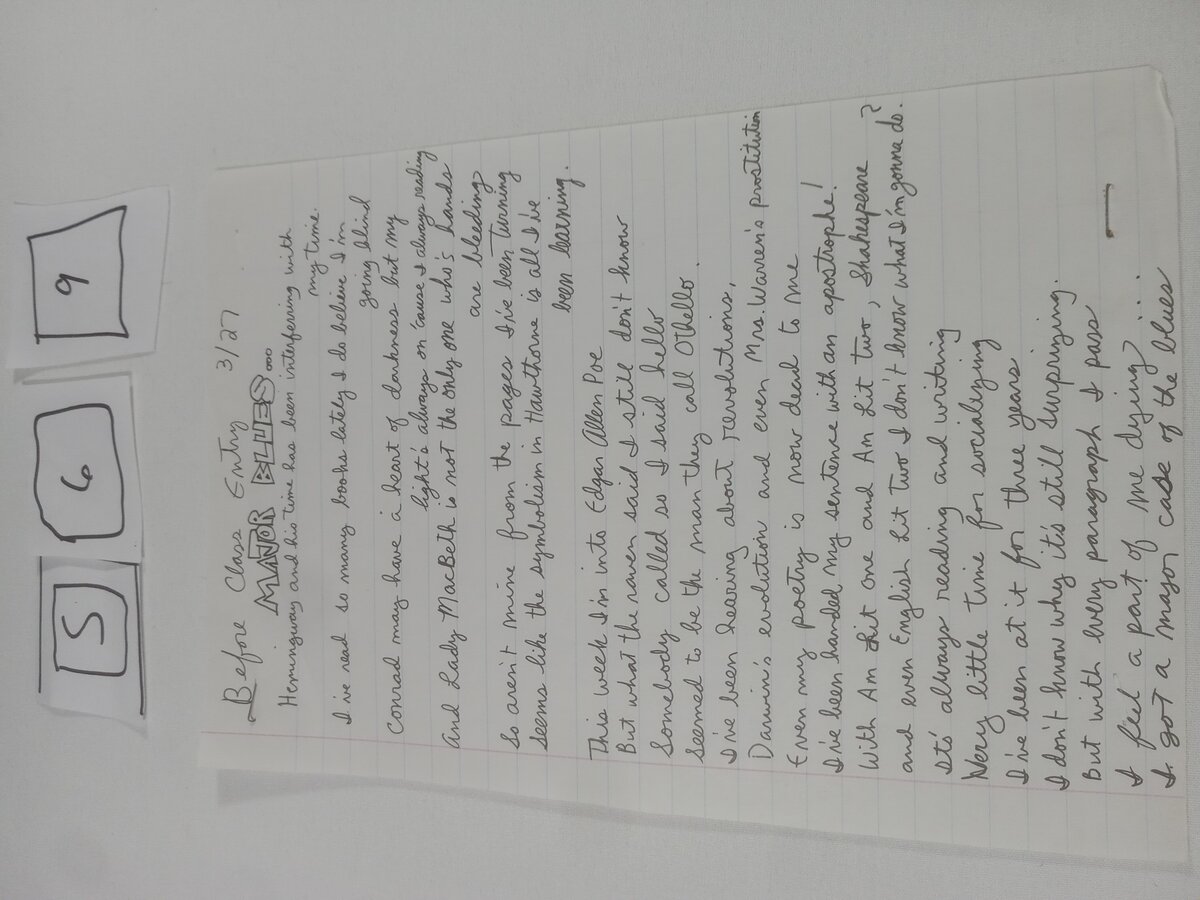 5 6 9
Before Class Entry 3/27
MAJOR BLUES...
Hemingway and his time has been interferring with
my time.
I've read so many books lately I do believe I'm
going blind
Conrad may have a heart of darkness but my
light's always on 'cause I always reading
And Lady MacBeth is not the only one who's hands
are bleeding
So aren't mine from the pages I've been turning
Seems like the symbolism in Hawthorne is all I've
been learning.
This week I'm into Edgar Allen Poe
But what the raven said I still don't know
Somebody called so I said hello
Seemed to be the man they call Othello.
I've been hearing about revolutions,
Darwin's evolution and even Mrs. Warren's prostitution
Even my poetry is now dead to me
I've been handed my sentence with an apostrophe!
With Am Lit one and Am Lit two, Shakespeare?
and even English Lit two I don't know what I'm gonna do.
It's always reading and writing
Very little time for socialying
I've been at it for three years
I don't know why it's still surprizing.
But with every paragraph I pass
I feel a part of me dying?
I got a major case of the blues...